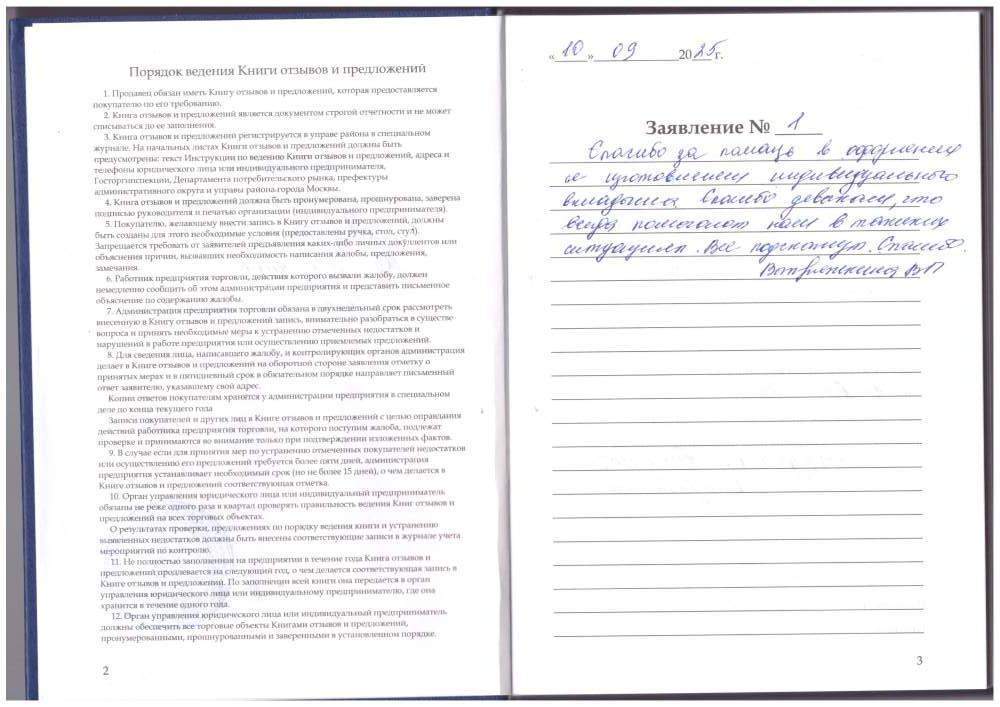 Порядок ведения Книги отзывов и предложений
1. Продавец обязан иметь Книгу отзывов и предложений, которая предоставляется
покупателю по его требованию.
2. Книга отзывов и предложений является документом строгой отчетности и не может
списываться до ее заполнения.
3. Книга отзывов и предложений регистрируется в управе района в специальном
журнале. На начальных листах Книги отзывов и предложений должны быть
предусмотрены: текст Инструкции по ведению Книги отзывов и предложений, адреса и
телефоны юридического лица или индивидуального предпринимателя,
Госторгинспекции, Департамента потребительского рынка, префектуры
административного округа и управы района города Москвы.
4. Книга отзывов и предложений должна быть пронумерована, прошнурована, заверена
подписью руководителя и печатью организации (индивидуального предпринимателя).
5. Покупателю, желающему внести запись в Книгу отзывов и предложений, должны
быть созданы для этого необходимые условия (предоставлены ручка, стол, стул).
Запрещается требовать от заявителей предъявления каких-либо личных документов или
объяснения причин, вызвавших необходимость написания жалобы, предложения,
замечания.
6. Работник предприятия торговли, действия которого вызвали жалобу, должен
немедленно сообщить об этом администрации предприятия и представить письменное
объяснение по содержанию жалобы.
7. Администрация предприятия торговли обязана в двухнедельный срок рассмотреть
внесенную в Книгу отзывов и предложений запись, внимательно разобраться в существе
вопроса и принять необходимые меры к устранению отмеченных недостатков и
нарушений в работе предприятия или осуществлению приемлемых предложений.
8. Для сведения лица, написавшего жалобу, и контролирующих органов администрация
делает в Книге отзывов и предложений на оборотной стороне заявления отметку о
принятых мерах и в пятидневный срок в обязательном порядке направляет письменный
ответ заявителю, указавшему свой адрес.
Копии ответов покупателям хранятся у администрации предприятия в специальном
деле до конца текущего года
Записи покупателей и других лиц в Книге отзывов и предложений с целью оправдания
действий работника предприятия торговли, на которого поступим жалоба, подлежат
проверке и принимаются во внимание только при подтверждении изложенных фактов.
9. В случае если для принятия мер по устранению отмеченных покупателей недостатков
или осуществлению его предложений требуется более пяти дней, администрация
предприятия устанавливает необходимый срок (но не более 15 дней), о чем делается в
Книге отзывов и предложений соответствующая отметка.
10. Орган управления юридического лица или индивидуальный предприниматель
обязаны не реже одного раза в квартал проверять правильность ведения Книг отзывов и
предложений на всех торговых объектах.
О результатах проверки, предложениях по порядку ведения книги и устранению
выявленных недостатков должны быть внесены соответствующие записи в журнале учета
мероприятий по контролю.
11. Не полностью заполненная на предприятии в течение года Книга отзывов и
предложений продлевается на следующий год, о чем делается соответствующая запись в
Книге отзывов и предложений. По заполнении всей книги она передается в орган
управления юридического лица или индивидуальному предпринимателю, где она
хранится в течение одного года.
12. Орган управления юридического лица или индивидуальный предприниматель
должны обеспечить все торговые объекты Книгами отзывов и предложений,
пронумерованными, прошнурованными и заверенными в установленном порядке.
2
«10» 09 2025 г.
Заявление № 1
Спасибо за помощь в оформлении
изготовления индивидуального
вкладыша Спасибо девочкам, что
всегда помогают нам в таких
ситуациях. Все подскажут. Спасибо.
ВП
3